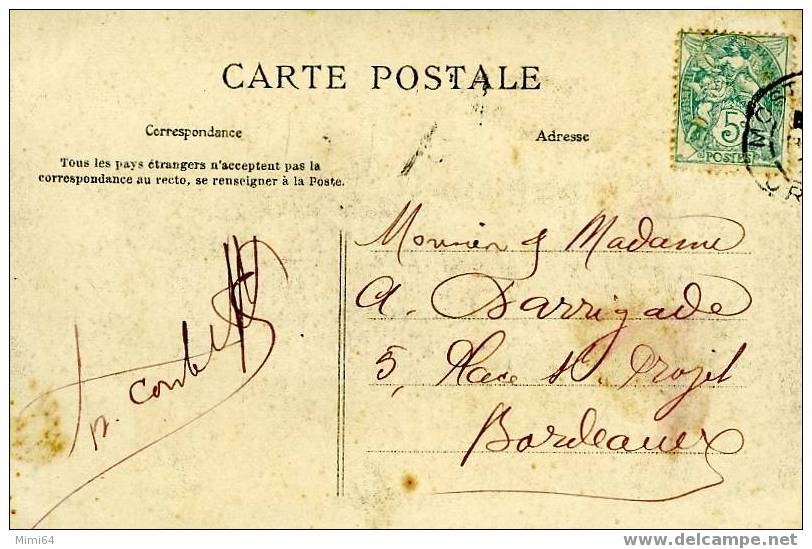 CARTE POSTALE
Correspondance
Adresse
Tous les pays étrangers n'acceptent pas la
correspondance au recto, se renseigner à la Poste.
5
POSTES
MONT
Monsieur & Madame
A. Darrigade
5, Place St. Projet
Bordeaux
Mimi64
www.delcampe.net